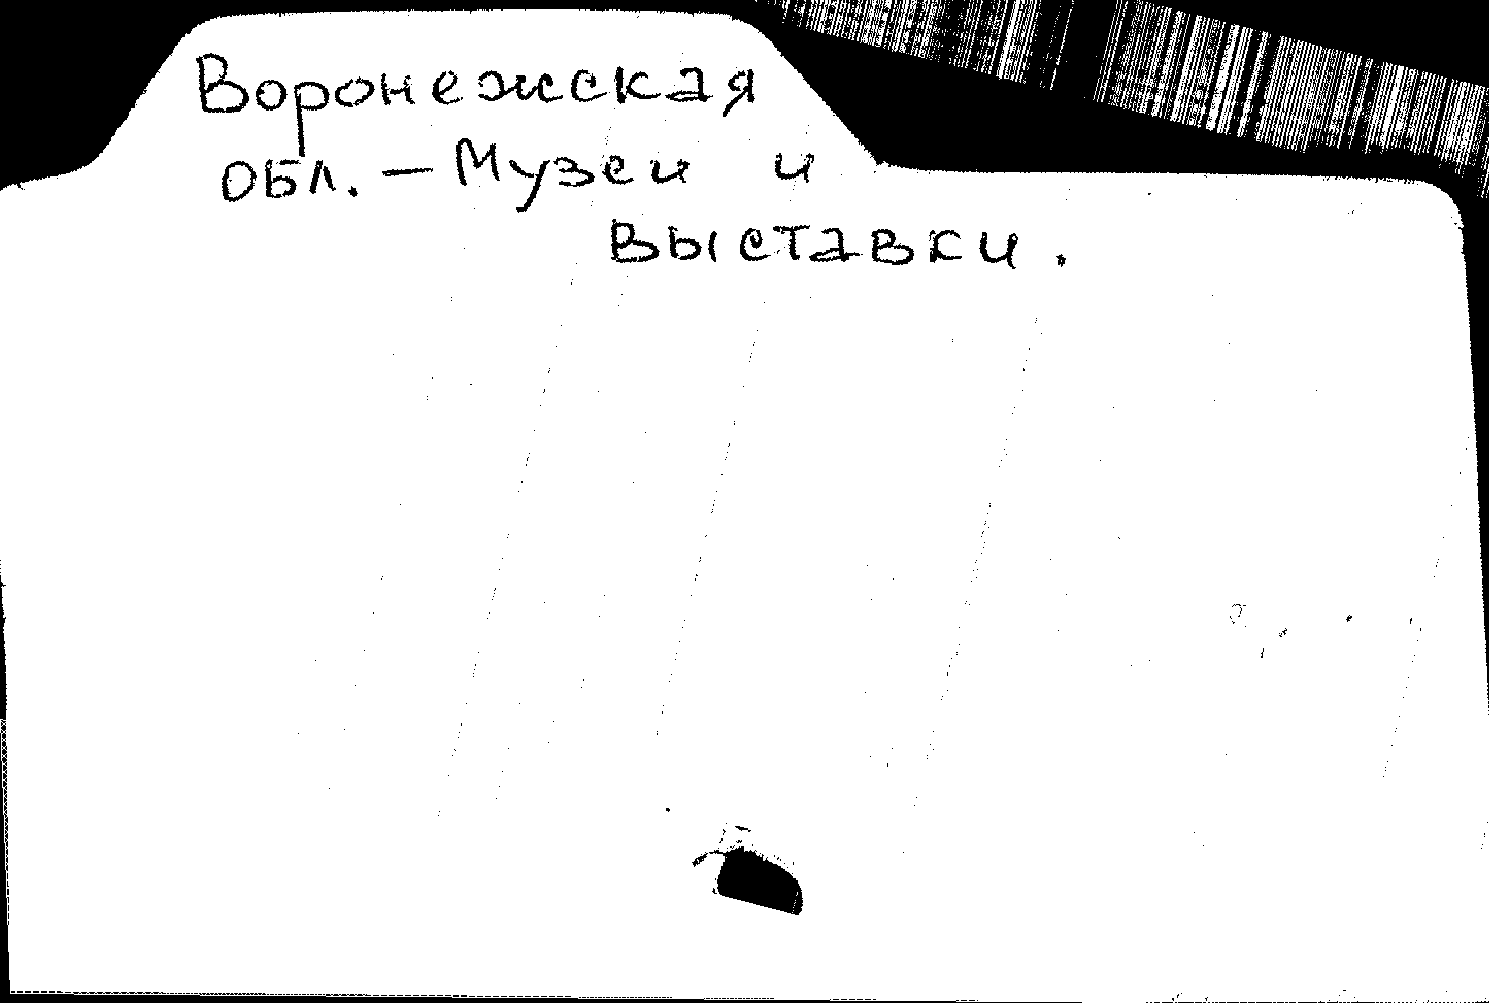 Воронежская
обл. — Музеи и
выставки.